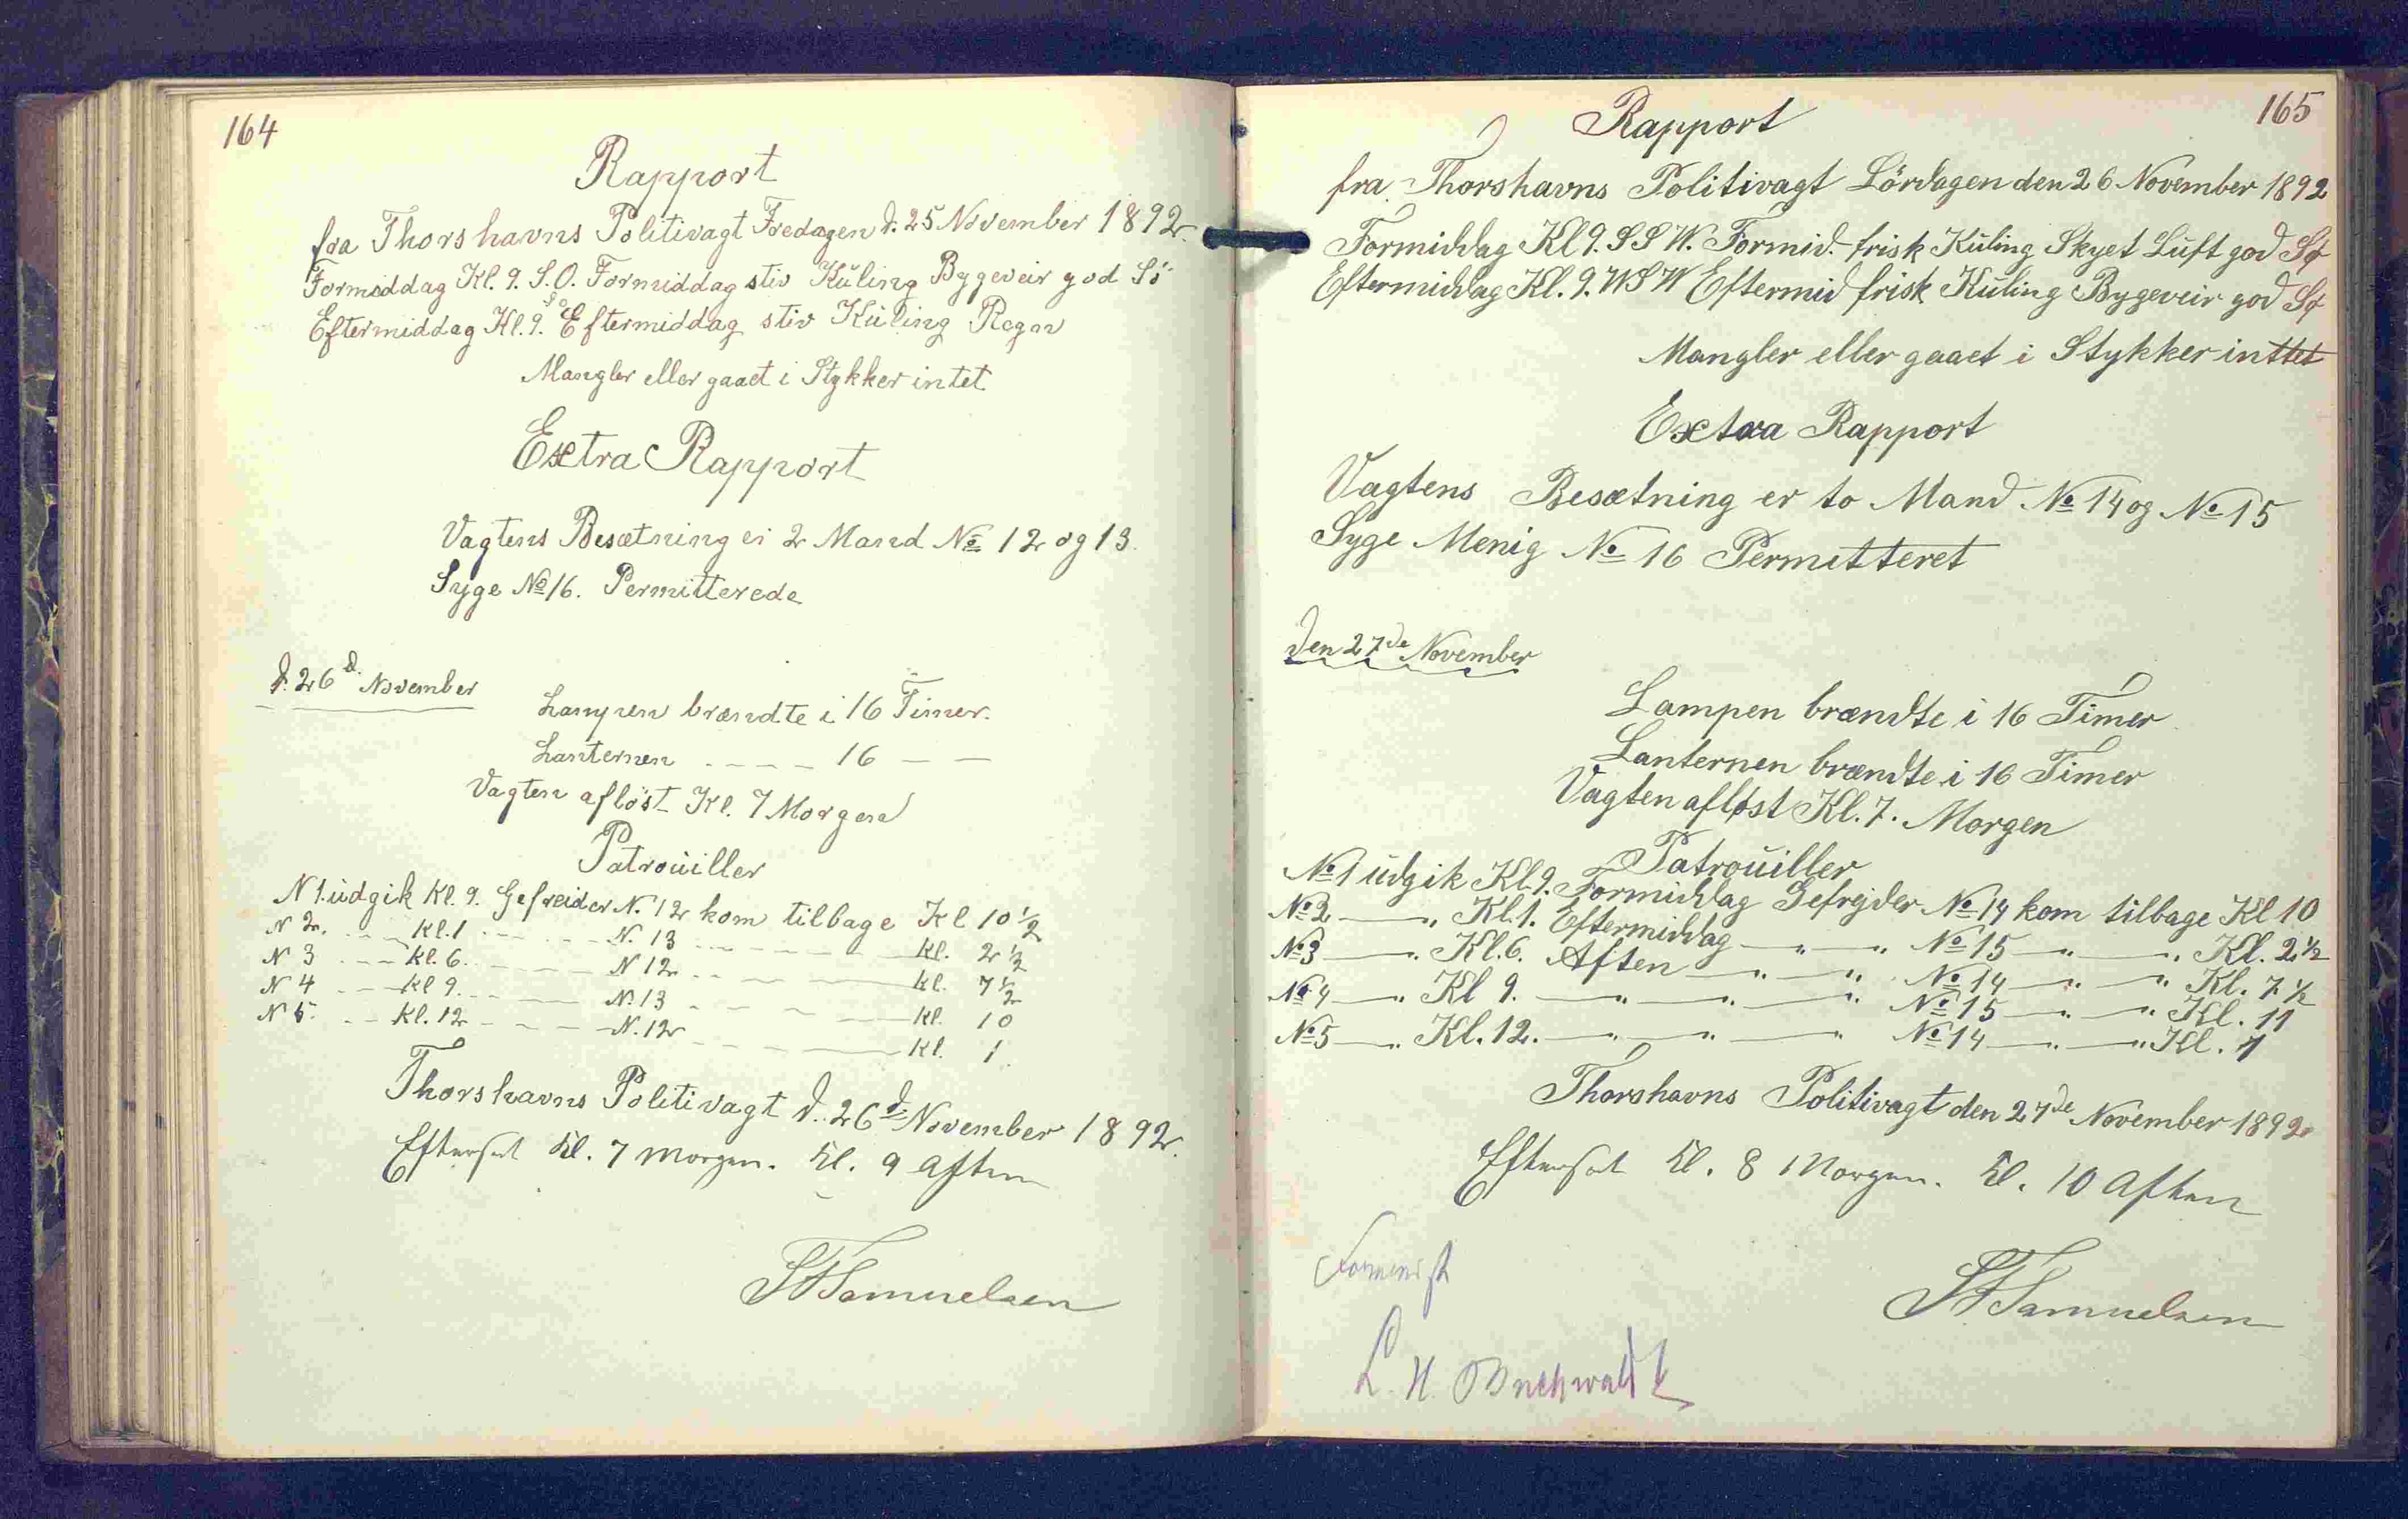 164
Rapport
fra Thorshavns Politivagt Fredagen d. 25 November 1892.
Formiddag Kl. 9. S.O. Formiddag stiv Kúling Bygeveir god Sö
Eftermiddag Kl. 9. So Eftermiddag stiv Kúling Regn
Mangler eller gaaet i Stykker intet
Extra Rapport
Vagtens Besætning er 2 Mand No 12 og 13.
Syge No 16. Permitterede
d. 26 d. November
Lampen brændte i 16 Timer.
Lanternen - - - - 16 — —
Vagten aflöst Kl. 7 Morgen
Patroúiller
N 1. údgik Kl. 9. Gefreider N. 12 kom tilbage Kl 10 1/2
N 2. - - - Kl. 1 - - - - N. 13 - - - - - Kl. 2 1/2
N 3 - - - Kl. 6. - - - - N 12 - - - - - Kl. 7 1/2
N 4 - - - Kl 9. - - - - N. 13 - - - - - Kl. 10
N 5. - - - Kl. 12 - - - - N. 12 - - - - - Kl. 1.
Thorshavns Politivagt d. 26 d. November 1892.
Efterset Kl. 7 Morgen. Kl. 9 Aften
Samuelsen
165
Rapport
fra Thorshavns Politivagt Lördagen den 26 November 1892
Formiddag Kl 9. S S W. Formid. frisk Kúling Skyet Lúft god Sø
Eftermiddag Kl. 9. W S W Eftermid frisk Kúling Bygeveir god Sø
Mangler eller gaaet i Stykker inttet
Extra Rapport
Vagtens Besætning er to Mand No 14 og No 15
Syge Menig No 16 Permitteret
Den 27de November
Lampen brændte i 16 Timer
Lanternen brændte i 16 Timer
Vagten afløst Kl. 7. Morgen
Patroúiller
No 1 údgik Kl 9. Formiddag Gefrejder No 14 kom tilbage Kl 10
No 2 — " Kl. 1. Eftermiddag — " — " No 15 — " — " Kl. 2 1/2
No 3 — " Kl. 6. Aften — " — " No 14 — " — " Kl. 7 1/2
No 4 — " Kl 9. — " — " — " No 15 — " — " Kl. 11
No 5 — " Kl. 12. — " — " — " No 14 — " — " Kl. 1
Thorshavns Politivagt den 27de November 1892
Efterset Kl. 8 Morgen. Kl. 10 Aften
Samuelsen
L. H. Buchwaldt